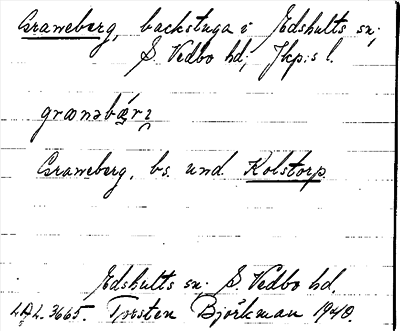 Graneberg, backstuga i Edshults sn;
S. Vedbo hd; Jkp:s l.
Graneberg, bs. und. Kolstorp.
Edshults sn; S. Vedbo hd.
LAL. 3665. Torsten Björkman 1940.